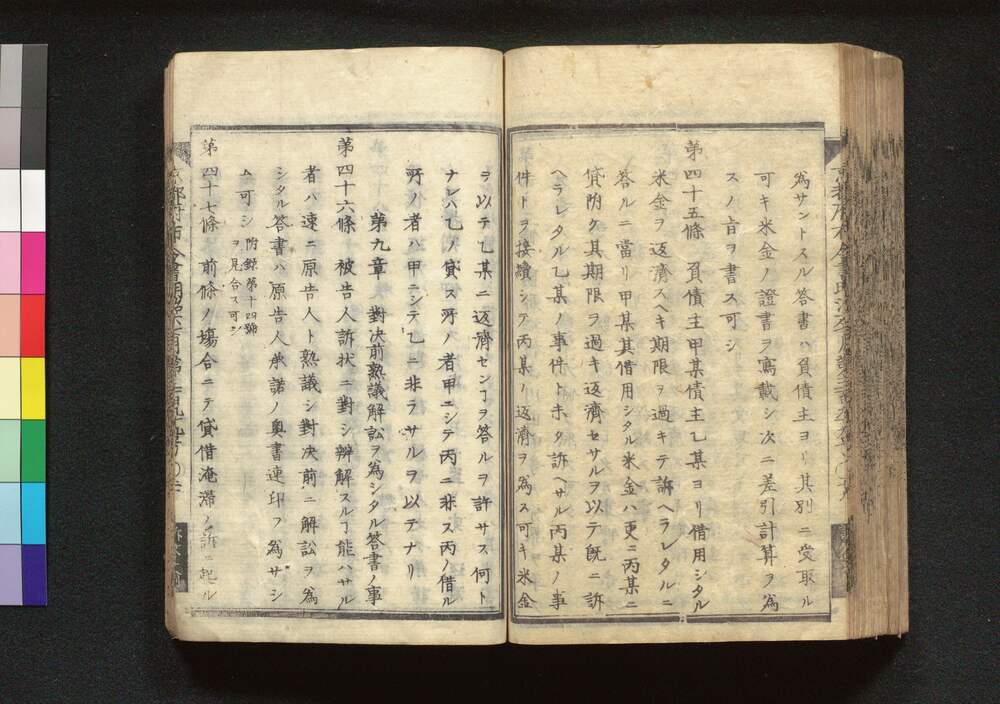 為サントスル答書ハ負債主ヨリ其別ニ受取ル
可キ米金ノ證書ヲ寫載シ次ニ差引計算ヲ為
スノ旨ヲ書ス可シ
第四十五條 負債主甲某債主乙某ヨリ借用シタル
米金ヲ返濟スヘキ期限ヲ過キテ訴ヘラレタルニ
答ルニ當リ甲某其借用シタル米金ハ更ニ丙某ニ
貸附ケ其期限ヲ過キ返濟セサルヲ以テ既ニ訴
ヘラレタル乙某ノ事件ト未タ訴ヘサル丙某ノ事
件トヲ接續シテ丙某ノ返濟ヲ為ス可キ米金
ヲ以テ乙某ニ返濟センヿヲ答ルヲ許サス何ト
ナレハ乙ノ貸ス所ノ者甲ニシテ丙ニ非ス丙ノ借ル
所ノ者ハ甲ニシテ乙ニ非ラサルヲ以テナリ
第九章 對決前熟議解訟ヲ為シタル答書ノ事
第四十六條 被告人訴狀ニ對シ辨解スルヿ能ハサル
者ハ速ニ原告人ト熟議シ對決前ニ解訟ヲ為
シタル答書ハ原告人承諾ノ奥書連印ヲ為サシ
ム可シ 附録第十四號
ヲ見合ス可シ
第四十七條 前條ノ塲合ニテ貸借淹滯ノ訴ニ起ル